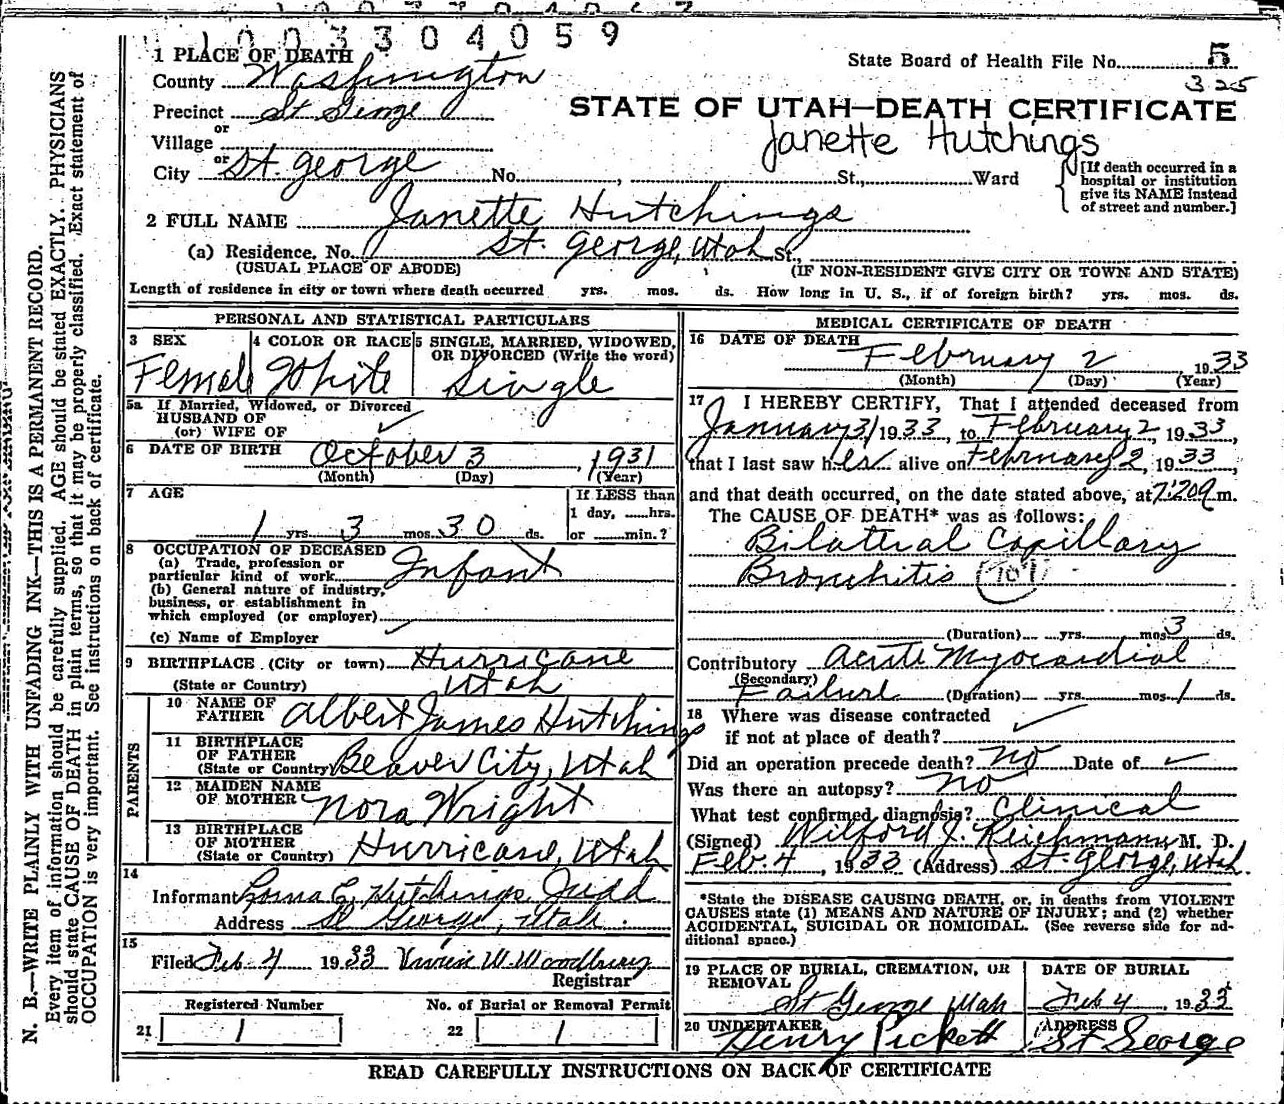 1003304059
1 PLACE OF DEATH
State Board of Health File No. 5
325
County Washington
STATE OF UTAH—DEATH CERTIFICATE
Precinct St George
or
Village
Janette Hutchings
or
City St. George No. , St., Ward
[If death occurred in a
hospital or institution
give its NAME instead
of street and number.]
2 FULL NAME Janette Hutchings
(a) Residence. No. St. George, Utah St.,
(USUAL PLACE OF ABODE) (IF NON-RESIDENT GIVE CITY OR TOWN AND STATE)
Length of residence in city or town where death occurred yrs. mos. ds. How long in U. S., if of foreign birth? yrs. mos. ds.
PERSONAL AND STATISTICAL PARTICULARS
3 SEX 4 COLOR OR RACE 5 SINGLE, MARRIED, WIDOWED,
OR DIVORCED (Write the word)
Female White Single
5a If Married, Widowed, or Divorced
HUSBAND OF
(or) WIFE OF
6 DATE OF BIRTH October 3, 1931
(Month) (Day) (Year)
7 AGE If LESS than
1 day, hrs.
1 yrs. 3 mos. 30 ds. or min.?
8 OCCUPATION OF DECEASED
(a) Trade, profession or
particular kind of work Infant
(b) General nature of industry,
business, or establishment in
which employed (or employer)
(c) Name of Employer
9 BIRTHPLACE (City or town) Hurricane
(State or Country) Utah
PARENTS
10 NAME OF
FATHER Albert James Hutchings
11 BIRTHPLACE
OF FATHER
(State or Country) Beaver City, Utah
12 MAIDEN NAME
OF MOTHER Nora Wright
13 BIRTHPLACE
OF MOTHER
(State or Country) Hurricane, Utah
14
Informant E. Hutchings Judd
Address St George, Utah.
15
Filed Feb 4 1933 W. Woodbury
Registrar
Registered Number No. of Burial or Removal Permit
21 1 22 1
MEDICAL CERTIFICATE OF DEATH
16 DATE OF DEATH
February 2 1933
(Month) (Day) (Year)
17 I HEREBY CERTIFY, That I attended deceased from
January 31 1933, to February 2, 1933,
that I last saw her alive on February 2, 1933,
and that death occurred, on the date stated above, at 7:20 m.
The CAUSE OF DEATH* was as follows:
Bilateral Capillary
Bronchitis 107
(Duration) yrs. mos. 3 ds.
Contributory Acute Myocardial
(Secondary)
Failure (Duration) yrs. mos. 1 ds.
18 Where was disease contracted
if not at place of death?
Did an operation precede death? No Date of
Was there an autopsy? No
What test confirmed diagnosis? Clinical
(Signed) Wilford J. Reichmann M. D.
Feb. 4, 1933 (Address) St. George, Utah.
*State the DISEASE CAUSING DEATH, or, in deaths from VIOLENT
CAUSES state (1) MEANS AND NATURE OF INJURY; and (2) whether
ACCIDENTAL, SUICIDAL OR HOMICIDAL. (See reverse side for ad-
ditional space.)
19 PLACE OF BURIAL, CREMATION, OR
REMOVAL
St George Utah
DATE OF BURIAL
Feb 4, 1933
20 UNDERTAKER
Henry Pickett
ADDRESS
St George
READ CAREFULLY INSTRUCTIONS ON BACK OF CERTIFICATE
N. B.—WRITE PLAINLY WITH UNFADING INK—THIS IS A PERMANENT RECORD.
Every item of information should be carefully supplied. AGE should be stated EXACTLY. PHYSICIANS
should state CAUSE OF DEATH in plain terms, so that it may be properly classified. Exact statement of
OCCUPATION is very important. See instructions on back of certificate.